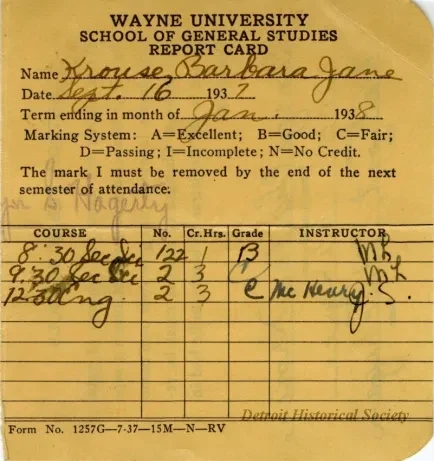 WAYNE UNIVERSITY
SCHOOL OF GENERAL STUDIES
REPORT CARD
Name Krouse, Barbara Jane
Date Sept. 16 1937
Term ending in month of Jan. 1938
Marking System: A=Excellent; B=Good; C=Fair;
D=Passing; I=Incomplete; N=No Credit.
The mark I must be removed by the end of the next
semester of attendance.
Hagerty
COURSE No. Cr.Hrs. Grade INSTRUCTOR
8:30 Sec Sci 122 1 B
9:30 Sec Sci 2 3
12:30 Eng. 2 3 C McHenry J.S.
Detroit Historical Society
Form No. 1257G—7-37—15M—N—RV